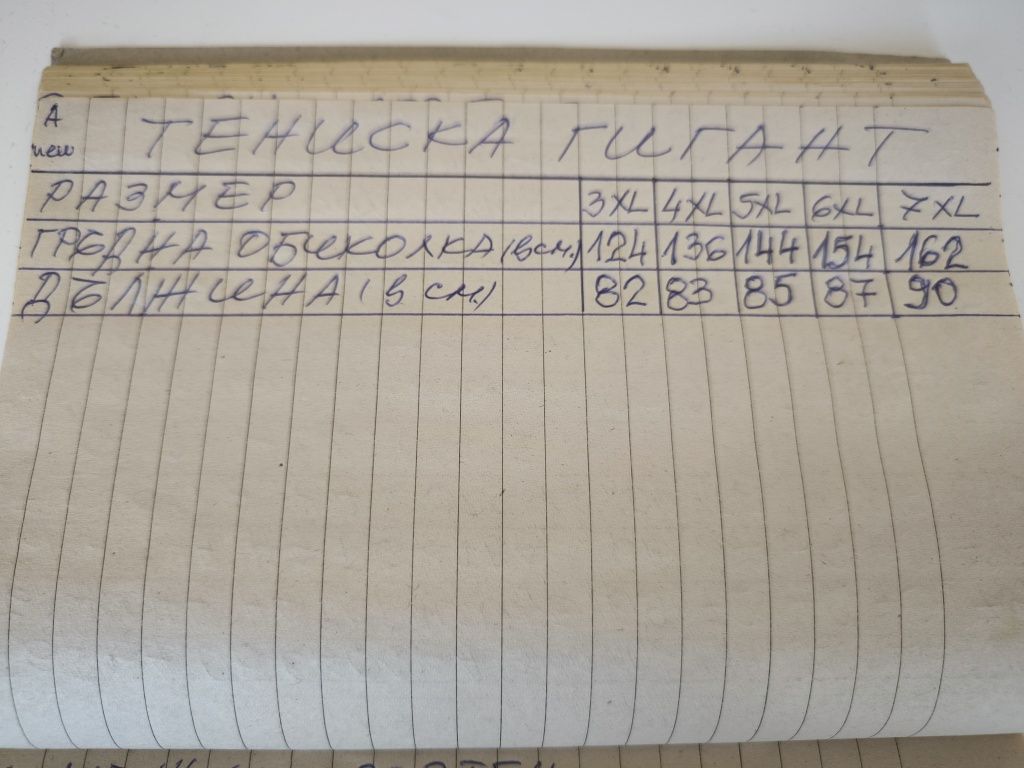 A
new
ТЕНИСКА ГИГАНТ
РАЗМЕР 3XL 4XL 5XL 6XL 7XL
ГРЪДНА ОБИКОЛКА (в см.) 124 136 144 154 162
ДЪЛЖИНА (в см.) 82 83 85 87 90